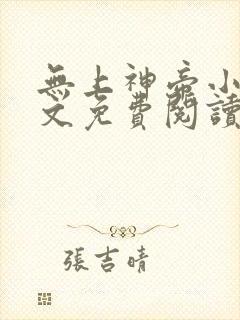 無上神帝小
文免費閱讀
張吉晴